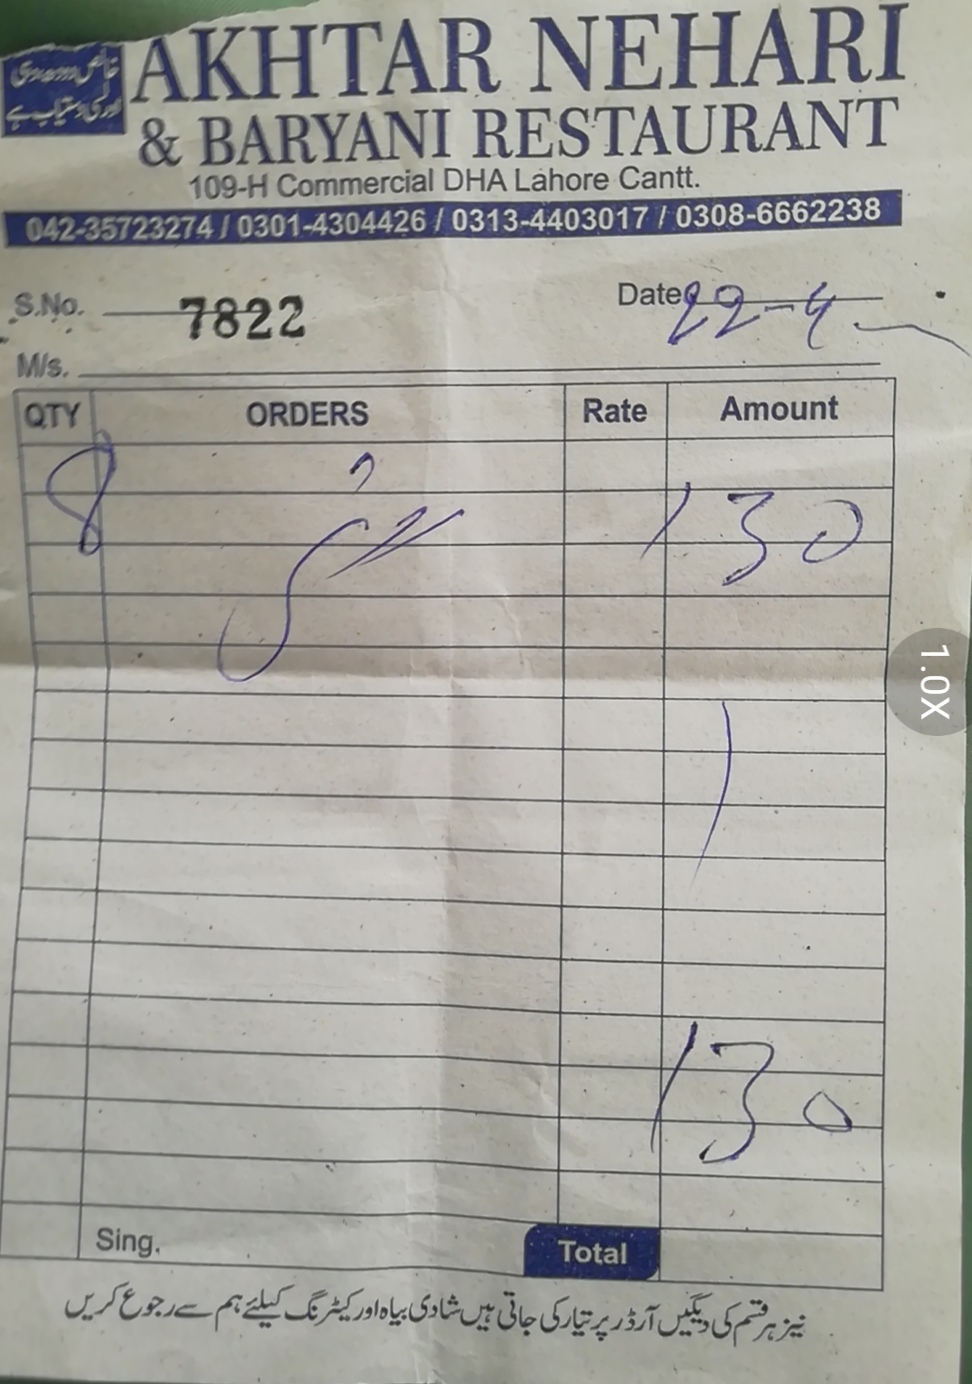 خالص دودھ دہی
اور لسی دستیاب ہے
AKHTAR NEHARI
& BARYANI RESTAURANT
109-H Commercial DHA Lahore Cantt.
042-35723274 / 0301-4304426 / 0313-4403017 / 0308-6662238
S.No. 7822 Date 22-4
M/s.
QTY ORDERS Rate Amount
8 130
130
Sing. Total
نیز ہر قسم کی دیگیں آرڈر پر تیار کی جاتی ہیں شادی بیاہ اور کیٹرنگ کیلئے ہم سے رجوع کریں
1.0X